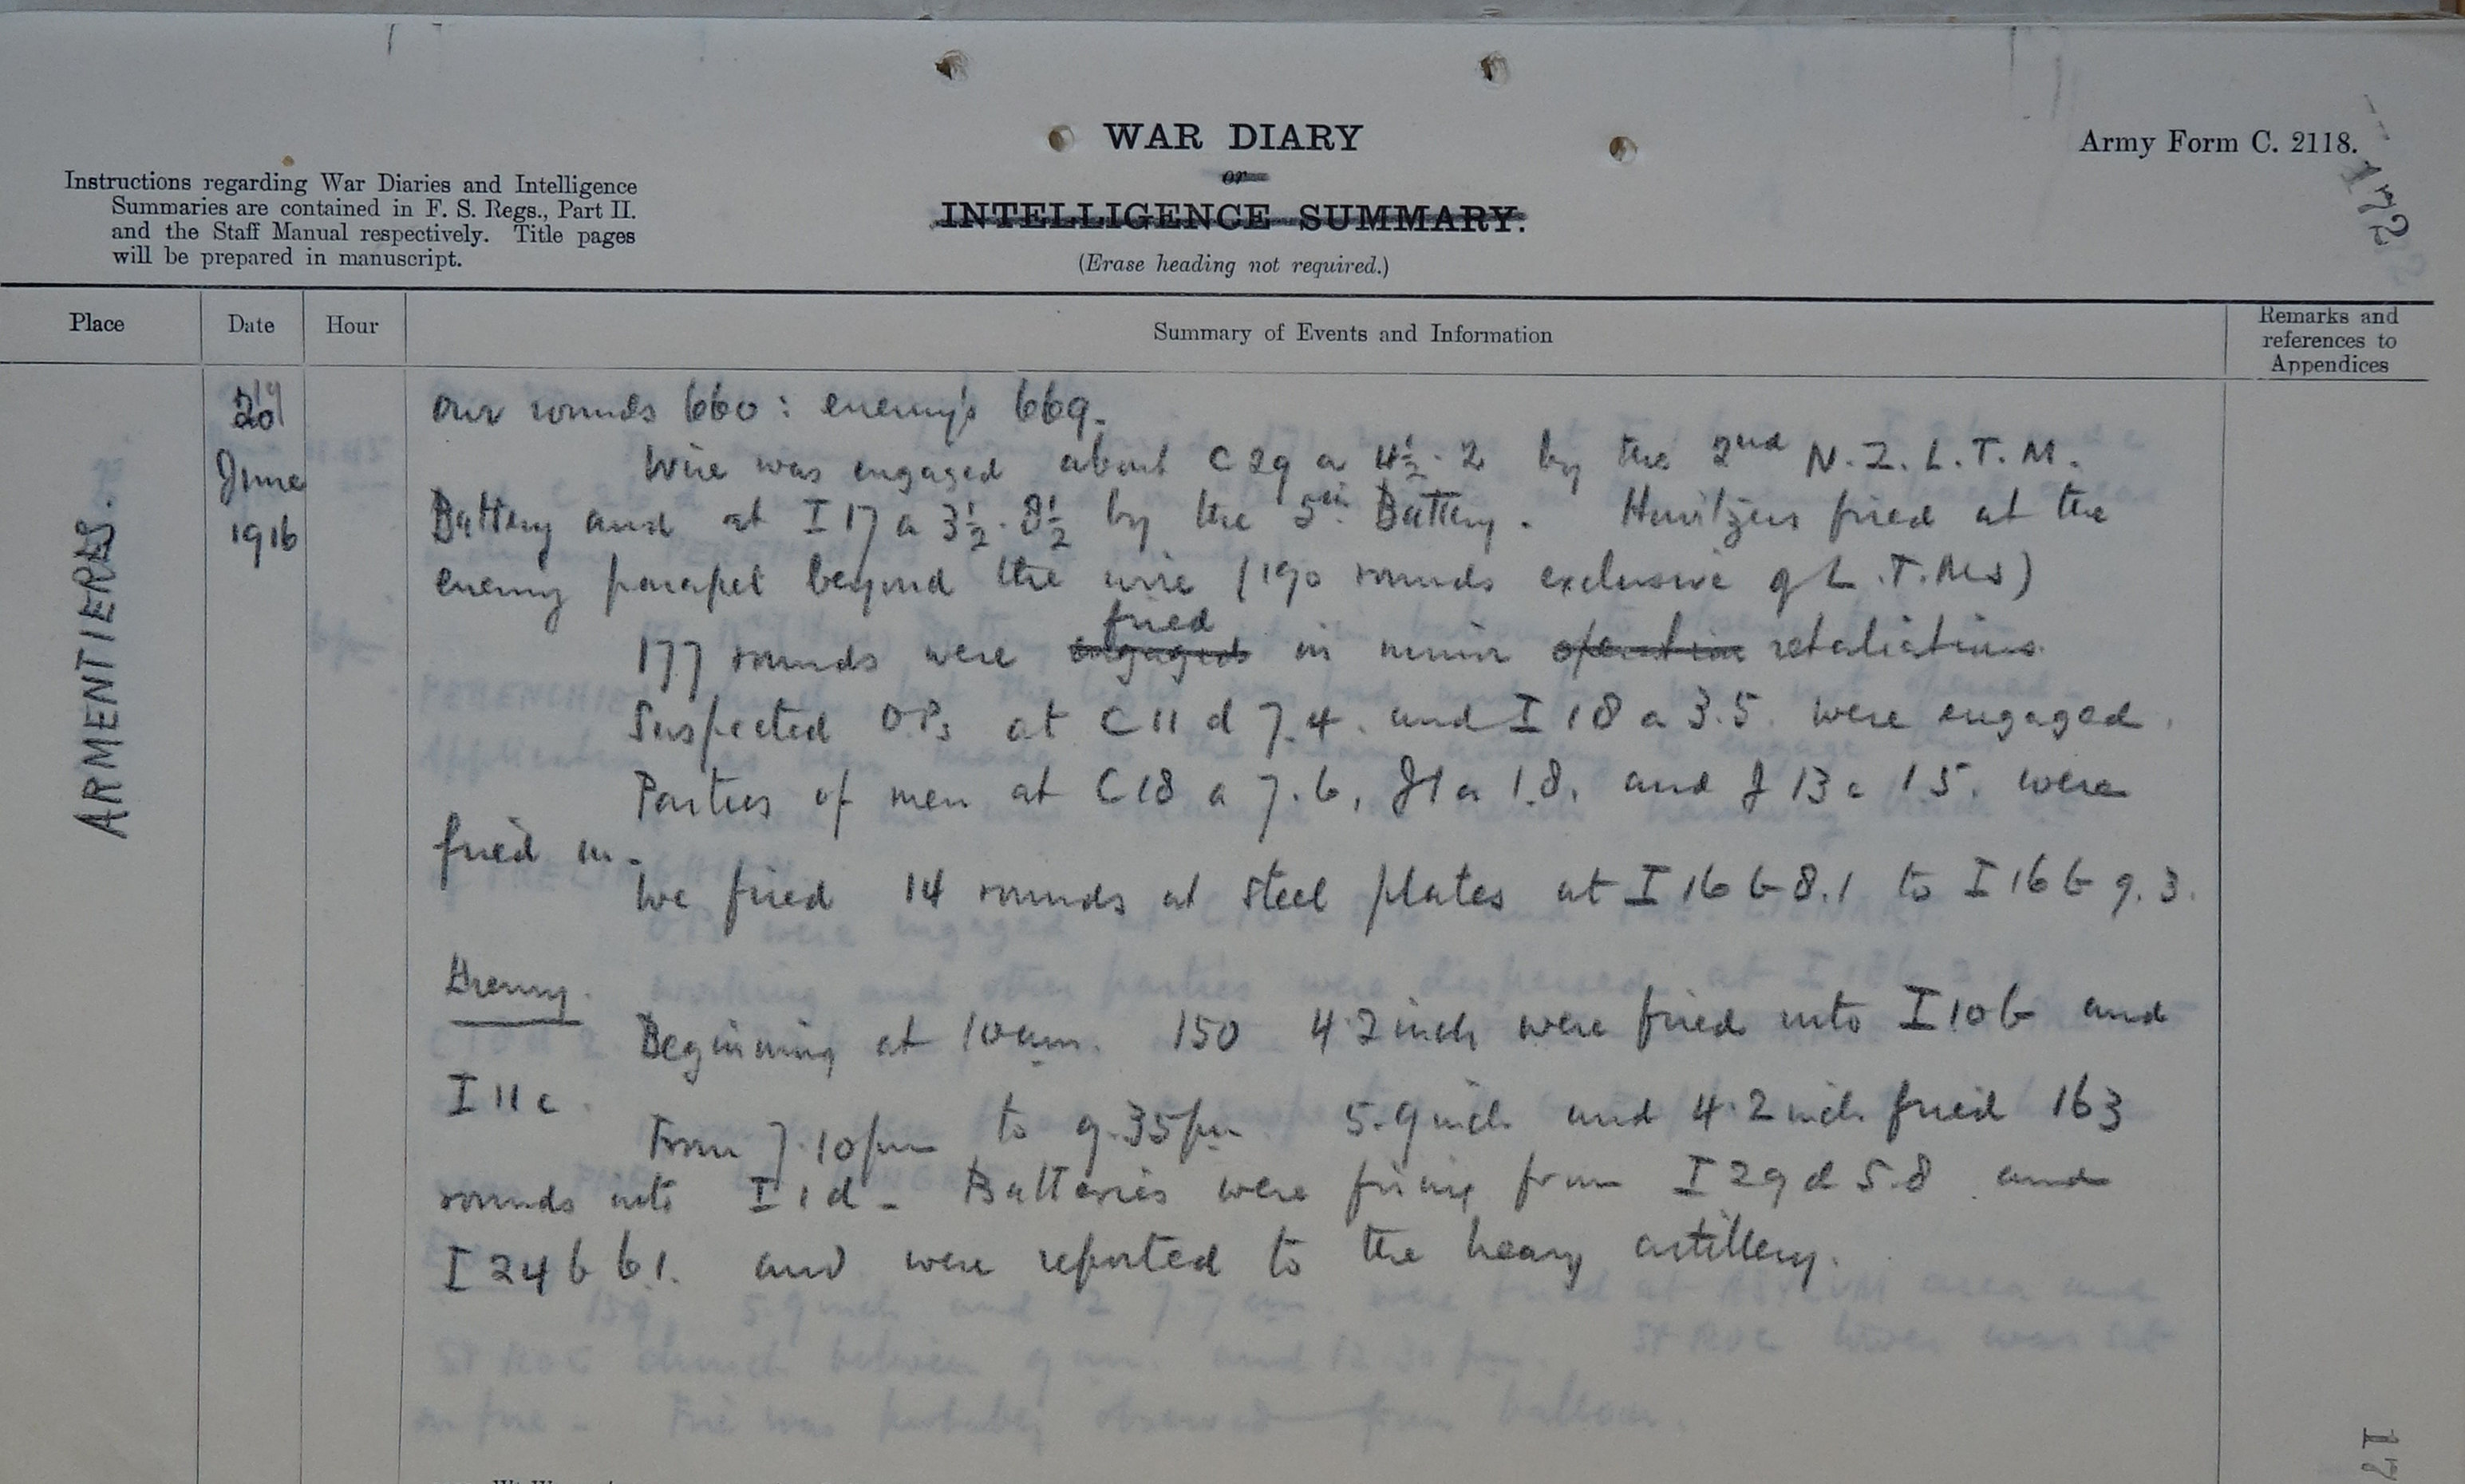 WAR DIARY
or
INTELLIGENCE SUMMARY.
(Erase heading not required.)
Army Form C. 2118.
172
Instructions regarding War Diaries and Intelligence
Summaries are contained in F. S. Regs., Part II.
and the Staff Manual respectively. Title pages
will be prepared in manuscript.
Place
Date
Hour
Summary of Events and Information
Remarks and
references to
Appendices
ARMENTIERES.
20
June
1916
Our rounds 660 : enemy's 669.
Wire was engaged about C 29 a 4½.2 by the 2nd N.Z.L.T.M.
Battery and at I 17 a 3½.8½ by the 5th Battery. Howitzers fired at the
enemy parapet beyond the wire (190 rounds exclusive of L.T.Ms)
fired
177 rounds were engaged in minor operation retaliations.
Suspected O.Ps at C 11 d 7.4. and I 18 a 3.5. were engaged.
Parties of men at C 18 a 7.6, J 1 a 1.8. and J 13 c 1 5. were
fired on.
We fired 14 rounds at steel plates at I 16 b 8.1 to I 16 b 9.3.
Enemy.
Beginning at 10am. 150 4.2 inch were fired into I 10 b and
I 11 c.
From 7.10pm to 9.35pm 5.9 inch and 4.2 inch fired 163
rounds into I 1 d. Batteries were firing from I 29 d 5.8 and
I 24 b 6.1. and were reported to the heavy artillery.
17